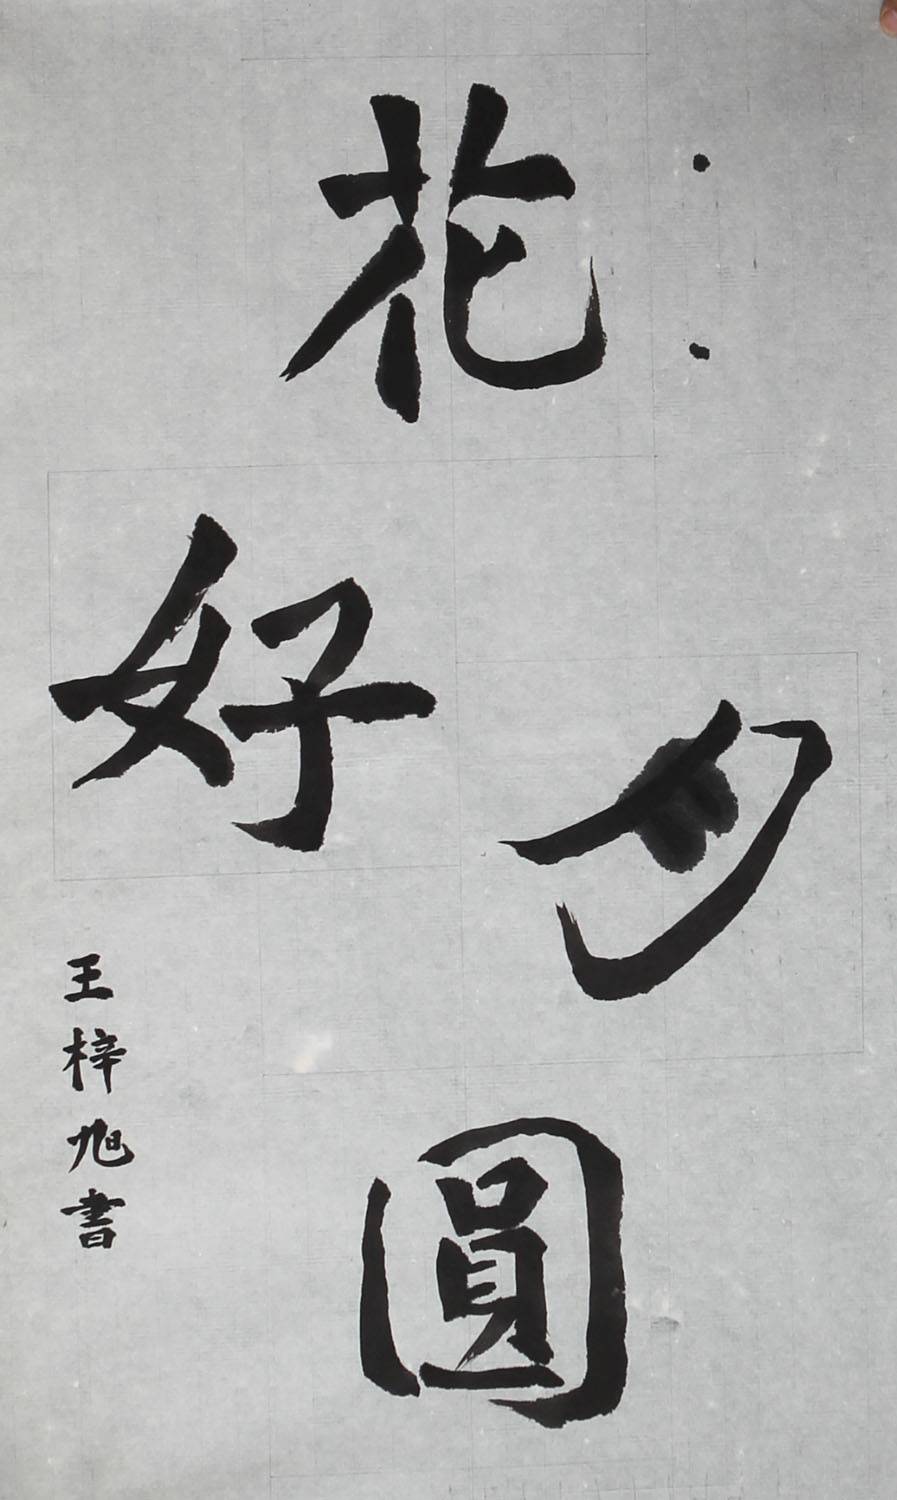 花好月圓
王梓旭書